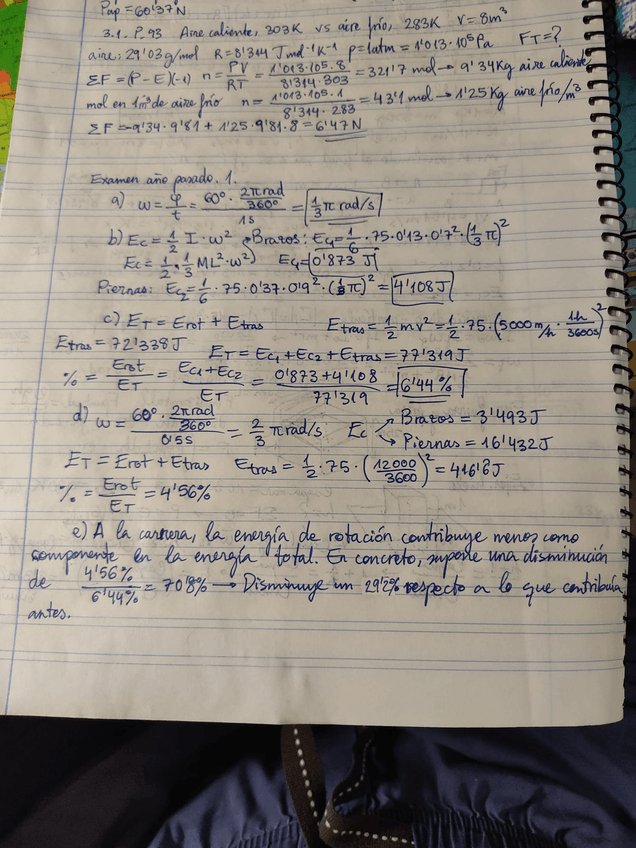 Pap = 60'37N
3.1. P. 93 Aire caliente, 303K vs aire frío, 283K V = 8m³
aire: 29'03 g/mol R = 8'314 J mol⁻¹K⁻¹ p = 1atm = 1'013·10⁵ Pa F_T = ?
ΣF = (P-E)(-1) n = PV/RT = 1'013·105·8/8'314·303 = 321'7 mol → 9'34Kg aire caliente
mol en 1m³ de aire frío n = 1'013·105·1/8'314·283 = 43'1 mol → 1'25 Kg aire frío/m³
ΣF = -9'34·9'81 + 1'25·9'81·8 = 6'47N
Examen año pasado. 1.
a) ω = φ/t = 60º · 2π rad/360º / 1s = 1/3 π rad/s
b) Ec = 1/2 I·ω² Brazos: Ec₁ = 1/6 · 75·0'13·0'7²·(1/3 π)²
Ec = 1/2 · 1/3 ML²·ω² Ec₁ = 0'873 J
Piernas: Ec₂ = 1/6 · 75·0'37·0'9²·(1/3 π)² = 4'108J
c) E_T = Erot + Etras Etras = 1/2 mv² = 1/2 · 75·(5000 m/h · 1h/3600s)²
Etras = 72'338J E_T = Ec₁ + Ec₂ + Etras = 77'319J
% = Erot/E_T = Ec₁+Ec₂/E_T = 0'873+4'108/77'319 = 6'44%
d) ω = 60º · 2π rad/360º / 0'5s = 2/3 π rad/s Ec Brazos = 3'493J
Piernas = 16'432J
E_T = Erot + Etras Etras = 1/2 · 75·(12000/3600)² = 416'6J
% = Erot/E_T = 4'56%
e) A la carrera, la energía de rotación contribuye menos como
componente en la energía total. En concreto, supone una disminución
de 4'56%/6'44% = 70'8% → Disminuye un 29'2% respecto a lo que contribuía
antes.